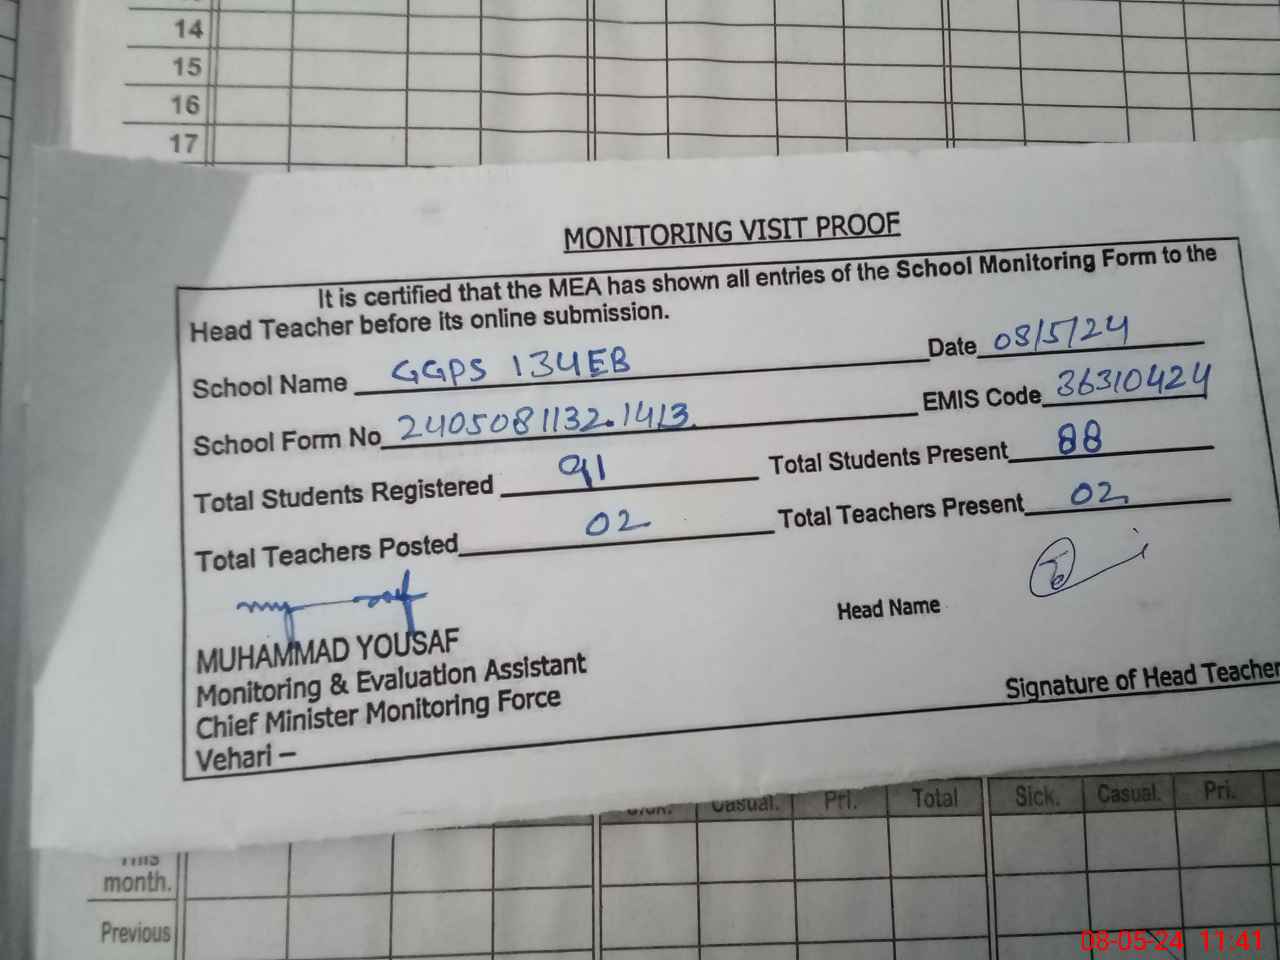 14
15
16
17
MONITORING VISIT PROOF
It is certified that the MEA has shown all entries of the School Monitoring Form to the
Head Teacher before its online submission.
School Name GGPS 134EB Date 08/5/24
School Form No 2405081132.1413 EMIS Code 36310424
Total Students Registered 91 Total Students Present 88
Total Teachers Posted 02 Total Teachers Present 02
MUHAMMAD YOUSAF
Head Name
Monitoring & Evaluation Assistant
Chief Minister Monitoring Force
Signature of Head Teacher
Vehari –
Casual. Pri. Total Sick. Casual. Pri.
This
month.
Previous
08-05-24 11:41